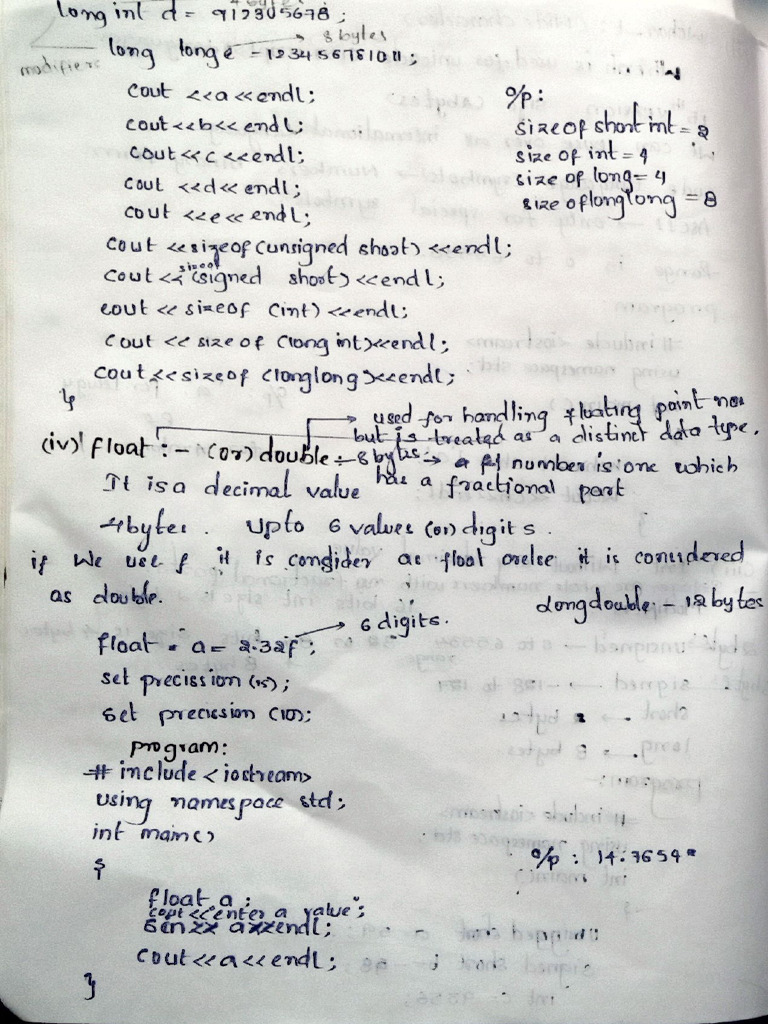 4 bytes
long int d = 912305678;
8 bytes
modifiers
long long e = 123456781011;
cout <<a<<endl;
cout<<b<<endl;
cout<<c<<endl;
cout <<d<<endl;
cout <<e<<endl;
o/p:
size of short int = 2
size of int = 4
size of long = 4
size of longlong = 8
cout <<sizeof (unsigned short) <<endl;
cout << sizeof (signed short) <<endl;
cout << sizeof (int) <<endl;
cout << size of (long int)<<endl;
cout<<sizeof (longlong)<<endl;
}
used for handling floating point nos
but is treated as a distinct data type.
(iv) float :- (or) double :- 8 bytes → a fl number is one which
has a fractional part
It is a decimal value
4bytes. Upto 6 values (or) digits.
if We use f it is consider as float orelse it is considered
as double.
Longdouble - 12 bytes
float a = 2.32f; → 6 digits.
set precission (15);
set precission (10);
program:
# include <iostream>
using namespace std;
int main()
{
o/p : 14.7654
float a;
cout <<"enter a value";
cin>> a>>endl;
cout<<a<<endl;
}